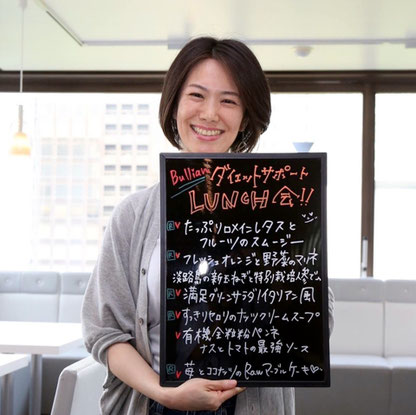 Bullian ダイエットサポート
LUNCH 会!!
たっぷりロメインレタスと
フルーツのスムージー
フレッシュオレンジと野菜のマリネ
淡路島の新玉ねぎと特別栽培冬で
満足グリーンサラダ イタリアン風
すっきりセロリのナッツクリームスープ
有機全粒粉ペンネ
ナスとトマトの最強ソース
苺とココナッツのRawマーブルケーキ